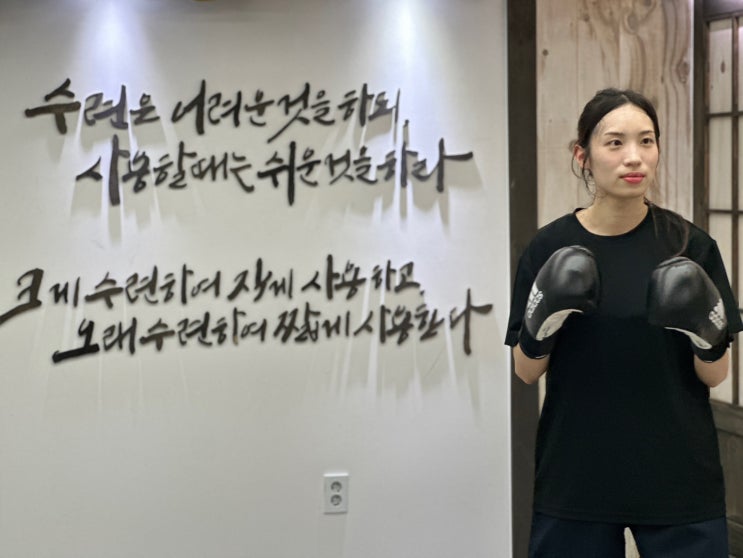 수련은 어려운 것을 하되,
사용할 때는 쉬운 것을 하라
크게 수련하여 작게 사용하고,
오래 수련하여 짧게 사용한다
adidas